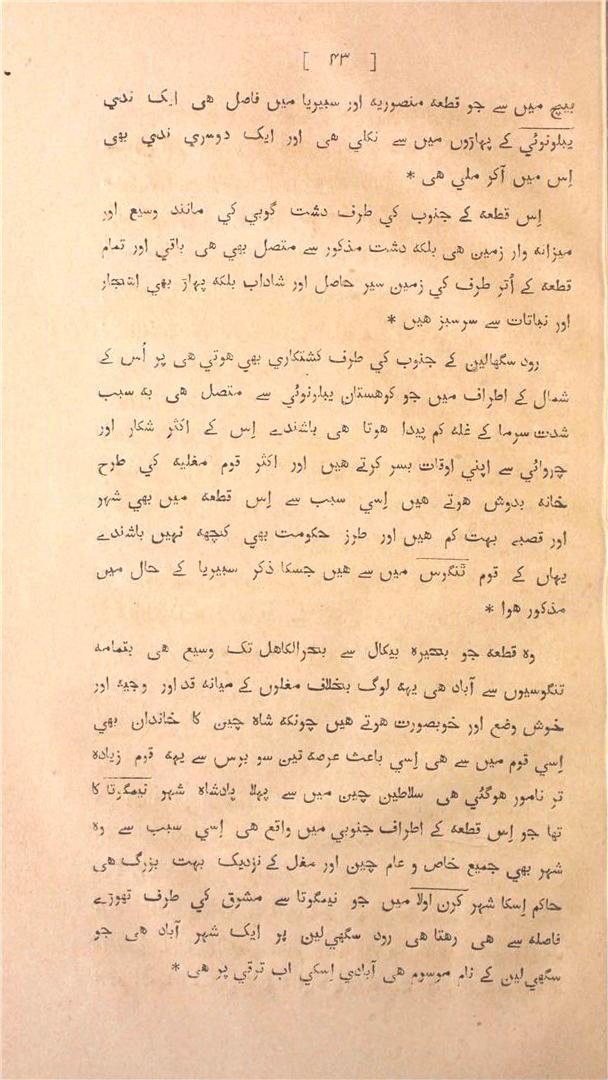 [ ۴۳ ]
بیچ میں سے جو قطعہ منصوریہ اور سبیریا میں فاصل ھی ایک ندي
یبلونوئي کے پہاڑوں میں سے نکلي ھی اور ایک دوسري ندي بھي
اِس میں آکر ملي ھی *
اِس قطعہ کے جنوب کي طرف دشت گوبي کي مانند وسیع اور
میزانہ وار زمین ھی بلکہ دشت مذکور سے متصل بھي ھی باقي اور تمام
قطعہ کے اُتر طرف کي زمین سیر حاصل اور شاداب بلکہ پہاڑ بھي اشجار
اور نباتات سے سرسبز ھیں *
رود سگھالین کے جنوب کي طرف کشتکاري بھي ھوتي ھی پر اُس کے
شمال کے اطراف میں جو کوھستان یبلونوئي سے متصل ھی بہ سبب
شدت سرما کے غلہ کم پیدا ھوتا ھی باشندے اِس کے اکثر شکار اور
چروائي سے اپني اوقات بسر کرتے ھیں اور اکثر قوم مغلیہ کي طرح
خانہ بدوش ھوتے ھیں اِسي سبب سے اِس قطعہ میں بھي شہر
اور قصبے بہت کم ھیں اور طرز حکومت بھي کچھہ نہیں باشندے
یہاں کے قوم تنگوس میں سے ھیں جسکا ذکر سبیریا کے حال میں
مذکور ھوا *
وہ قطعہ جو بحیرہ بیکال سے بحرالکاھل تک وسیع ھی بتمامہ
تنگوسیوں سے آباد ھی یہہ لوگ بخلاف مغلوں کے میانہ قد اور وجیہ اور
خوش وضع اور خوبصورت ھوتے ھیں چونکہ شاہ چین کا خاندان بھي
اِسي قوم میں سے ھی اِسي باعث عرصہ تین سو برس سے یہہ قوم زیادہ
تر نامور ھوگئي ھی سلاطین چین میں سے پہلا پادشاہ شہر نیمگوتا کا
تھا جو اِس قطعہ کے اطراف جنوبي میں واقع ھی اِسي سبب سے وہ
شہر بھي جمیع خاص و عام چین اور مغل کے نزدیک بہت بزرگ ھی
حاکم اِسکا شہر کرن اولا میں جو نیمگوتا سے مشرق کي طرف تھوڑے
فاصلہ سے ھی رھتا ھی رود سگھي‌لین پر ایک شہر آباد ھی جو
سگھي‌لین کے نام موسوم ھی آبادي اِسکي اب ترقي پر ھی *